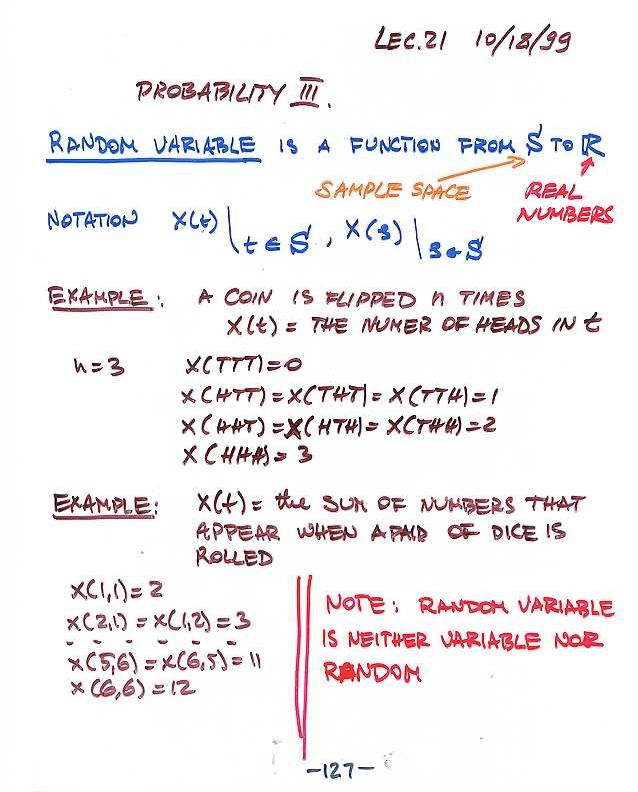 LEC.21 10/18/99
PROBABILITY III.
RANDOM VARIABLE IS A FUNCTION FROM S TO R
SAMPLE SPACE REAL
NUMBERS
NOTATION X(t)|t∈S, X(s)|s∈S
EXAMPLE: A COIN IS FLIPPED n TIMES
X(t) = THE NUMER OF HEADS IN t
n=3 X(TTT)=0
X(HTT)=X(THT)=X(TTH)=1
X(HHT)=X(HTH)=X(THH)=2
X(HHH)=3
EXAMPLE: X(t)= the SUM OF NUMBERS THAT
APPEAR WHEN A PAIR OF DICE IS
ROLLED
X(1,1)=2
X(2,1)=X(1,2)=3
- - - - - - -
X(5,6)=X(6,5)=11
X(6,6)=12
NOTE: RANDOM VARIABLE
IS NEITHER VARIABLE NOR
RANDOM
-127-